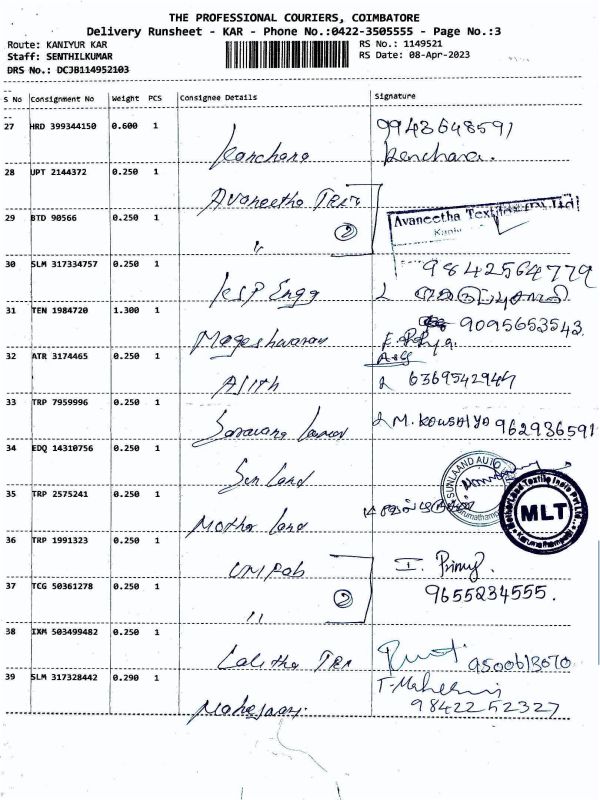 THE PROFESSIONAL COURIERS, COIMBATORE
Delivery Runsheet - KAR - Phone No.:0422-3505555 - Page No.:3
Route: KANIYUR KAR
RS No.: 1149521
Staff: SENTHILKUMAR
RS Date: 08-Apr-2023
DRS No.: DCJB114952103
S No Consignment No Weight PCS Consignee Details Signature
27 HRD 399344150 0.600 1
9943648591
Kanchana Kanchana.
28 UPT 2144372 0.250 1
Avaneetha Tex
29 BTD 90566 0.250 1
Avaneetha Tex
〃 2
30 SLM 317334757 0.250 1
9842564779
KSP Engg
31 TEN 1984720 1.300 1
9095653543
Mageshwaran
32 ATR 3174465 0.250 1
Ajith 6369542947
33 TRP 7959996 0.250 1
Saravana M. KOWSALYA 962936591
34 EDQ 14310756 0.250 1
Sun Land
SUNLAAND AUTO
35 TRP 2575241 0.250 1
Mother Land
MLT
36 TRP 1991323 0.250 1
UNIPOB
37 TCG 50361278 0.250 1
9655234555.
〃 2
38 IXM 503499482 0.250 1
Lalitha Tex 9500613070
39 SLM 317328442 0.290 1
9842252327